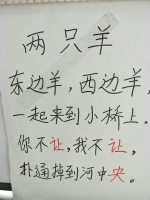 两只羊
东边羊,西边羊,
一起来到小桥上。
你不让,我不让,
扑通掉到河中央。